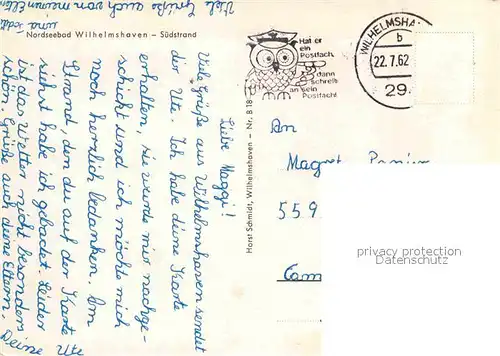 Nordseebad Wilhelmshaven – Südstrand
Liebe Maggi!
Viele Grüße aus Wilhelmshaven sendet
dir Ute. Ich habe deine Karte
erhalten, sie wurde mir nachge-
schickt und ich möchte mich
noch herzlich bedanken. Am
Strand, den du auf der Karte
siehst habe ich gebadet. Leider
ist das Wetter nicht besonders
schön. Grüße auch deine Eltern.
Deine Ute
Viele Grüße auch von meinen Eltern
Horst Schmidt, Wilhelmshaven – Nr. B 18
Hat er
ein
Postfach,
dann
schreib
an sein
Postfach!
WILHELMSHA
b
22.7.62
29
An
Magret
559
privacy protection
Datenschutz